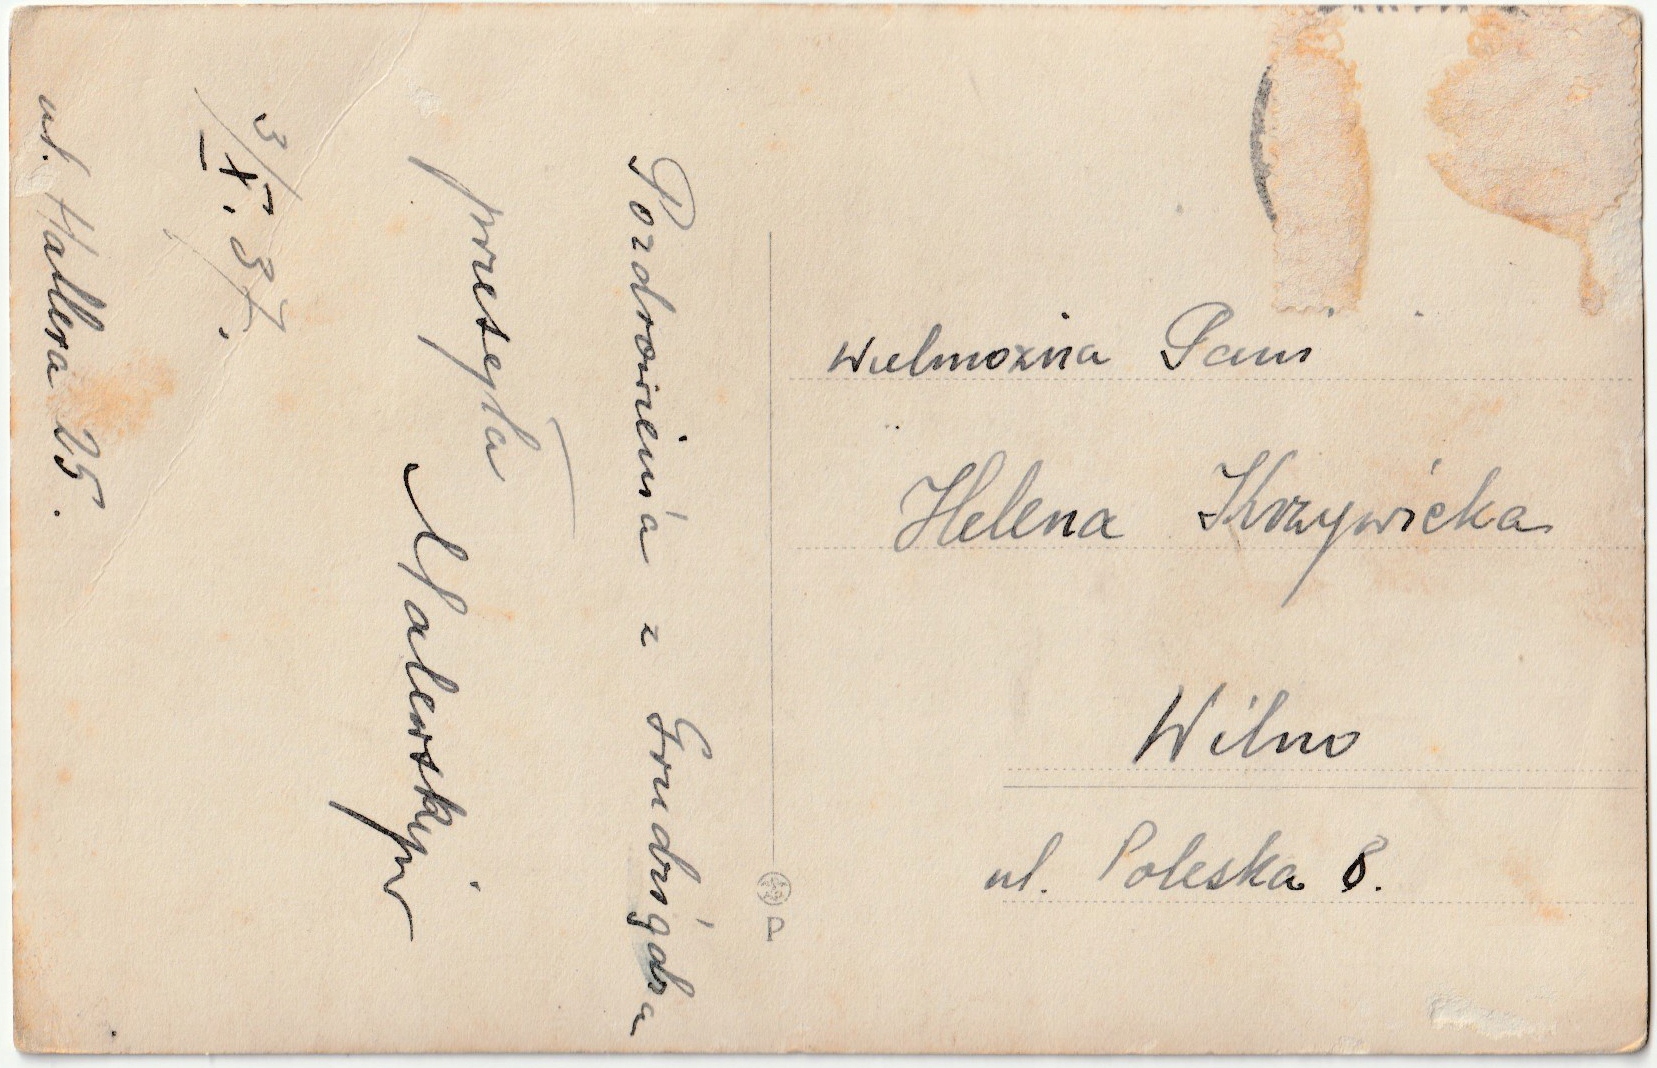 Pozdrowienia z Grudziądza
przesyła
Malewskij
3/X. 37.
ul. Hallera 25.
Wielmożna Pani
Helena Krzywicka
Wilno
ul. Poleska 8.
P